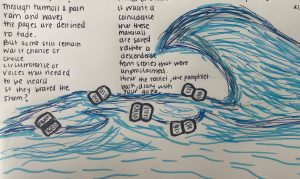 through turmoil & pain
rain and waves
the pages are destined
to fade.
But some still remain
was it chance or
choice
circumstance or
voices that needed
to be heard
so they braved the
storm?
it wasn't a
coincidence
that these
materials
are saved
rather a
descendence
from stories that were
unproclaimed
the pamphlet
book, diary with
your gaze.